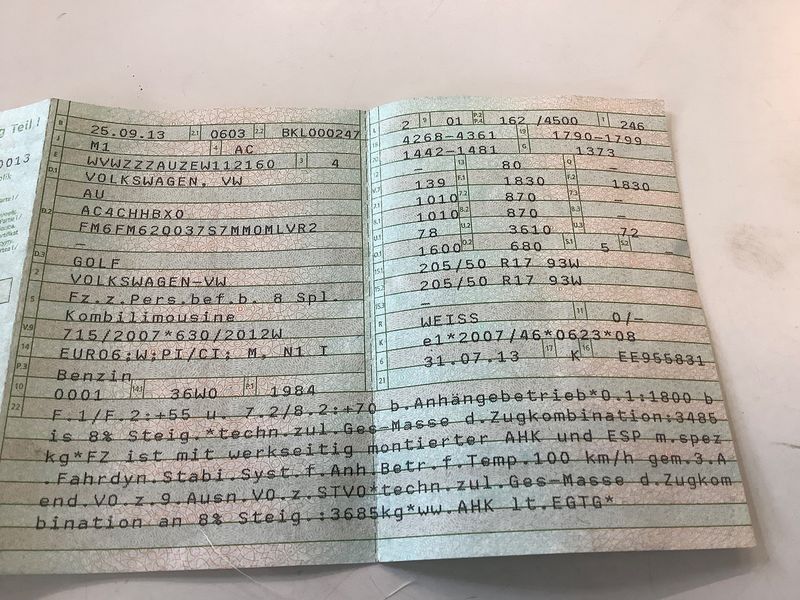 g Teil I
0013
B 25.09.13 2.1 0603 2.2 BKL000247
J M1 4 AC
E WVWZZZAUZEW112160 3 4
D.1 VOLKSWAGEN, VW
AU
D.2 AC4CHHBX0
FM6FM620037S7MM0MLVR2
–
D.3 GOLF
2 VOLKSWAGEN-VW
5 Fz.z.Pers.bef.b. 8 Spl.
Kombilimousine
V.9 715/2007*630/2012W
14 EURO6;W;PI/CI; M, N1 I
P.3 Benzin
10 0001 14.1 36W0 P.1 1984
L 2 9 01 P.2 P.4 162 /4500 T 246
18 4268-4361 19 1790-1799
20 1442-1481 G 1373
– 13 80 Q –
V.7 139 F.1 1830 F.2 1830
7.1 1010 7.2 870 7.3 –
8.1 1010 8.2 870 8.3 –
U.1 78 U.2 3610 U.3 72
O.1 1600 O.2 680 S.1 5 S.2 –
15.1 205/50 R17 93W
15.2 205/50 R17 93W
15.3 –
R WEISS 11 0/–
K e1*2007/46*0623*08
6 31.07.13 17 K 16 EE955831
21
22 F.1/F.2:+55 u. 7.2/8.2:+70 b.Anhängebetrieb*O.1:1800 b
is 8% Steig.*techn.zul.Ges-Masse d.Zugkombination:3485
kg*FZ ist mit werkseitig montierter AHK und ESP m.spez
.Fahrdyn.Stabi.Syst.f.Anh.Betr.f.Temp.100 km/h gem.3.Ä
end.VO.z.9.Ausn.VO.z.STVO*techn.zul.Ges-Masse d.Zugkom
bination an 8% Steig.:3685kg*ww.AHK lt.EGTG*